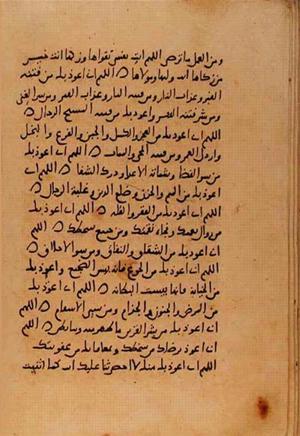 ومن العمل ما ترضى اللهم ات نفسى تقواها وزكها انت خير
من زكاها انت وليها ومولاها اللهم انى اعوذ بك من فتنة
القبر وعذاب النار ومن فتنة النار وعذاب القبر ومن شر الغنى
ومن شر فتنة الفقر واعوذ بك من فتنة المسيح الدجال
اللهم انى اعوذ بك من العجز والكسل والجبن والهرم والبخل
وارذل العمر ومن فتنة المحيى والممات اللهم انى اعوذ بك
من سوء القضا وشماتة الاعدا ودرك الشقا اللهم انى
اعوذ بك من الهم والحزن وضلع الدين وغلبة الرجال
اللهم انى اعوذ بك من الفقر والقلة اللهم انى اعوذ بك
من زوال نعمتك وفجاة نقمتك ومن جميع سخطك اللهم
انى اعوذ بك من الشقاق والنفاق ومن سوء الاخلاق
اللهم انى اعوذ بك من الجوع فانه بيس الضجيع واعوذ بك
من الخيانة فانها بيست البطانة اللهم انى اعوذ بك
من البرص والجنون والجذام ومن سيى الاسقام اللهم
انى اعوذ بك من شر
انى اعوذ برضاك من سخطك وبمعافاتك من عقوبتك
اللهم انى اعوذ بك منك لا احصى ثنا عليك انت كما اثنيت